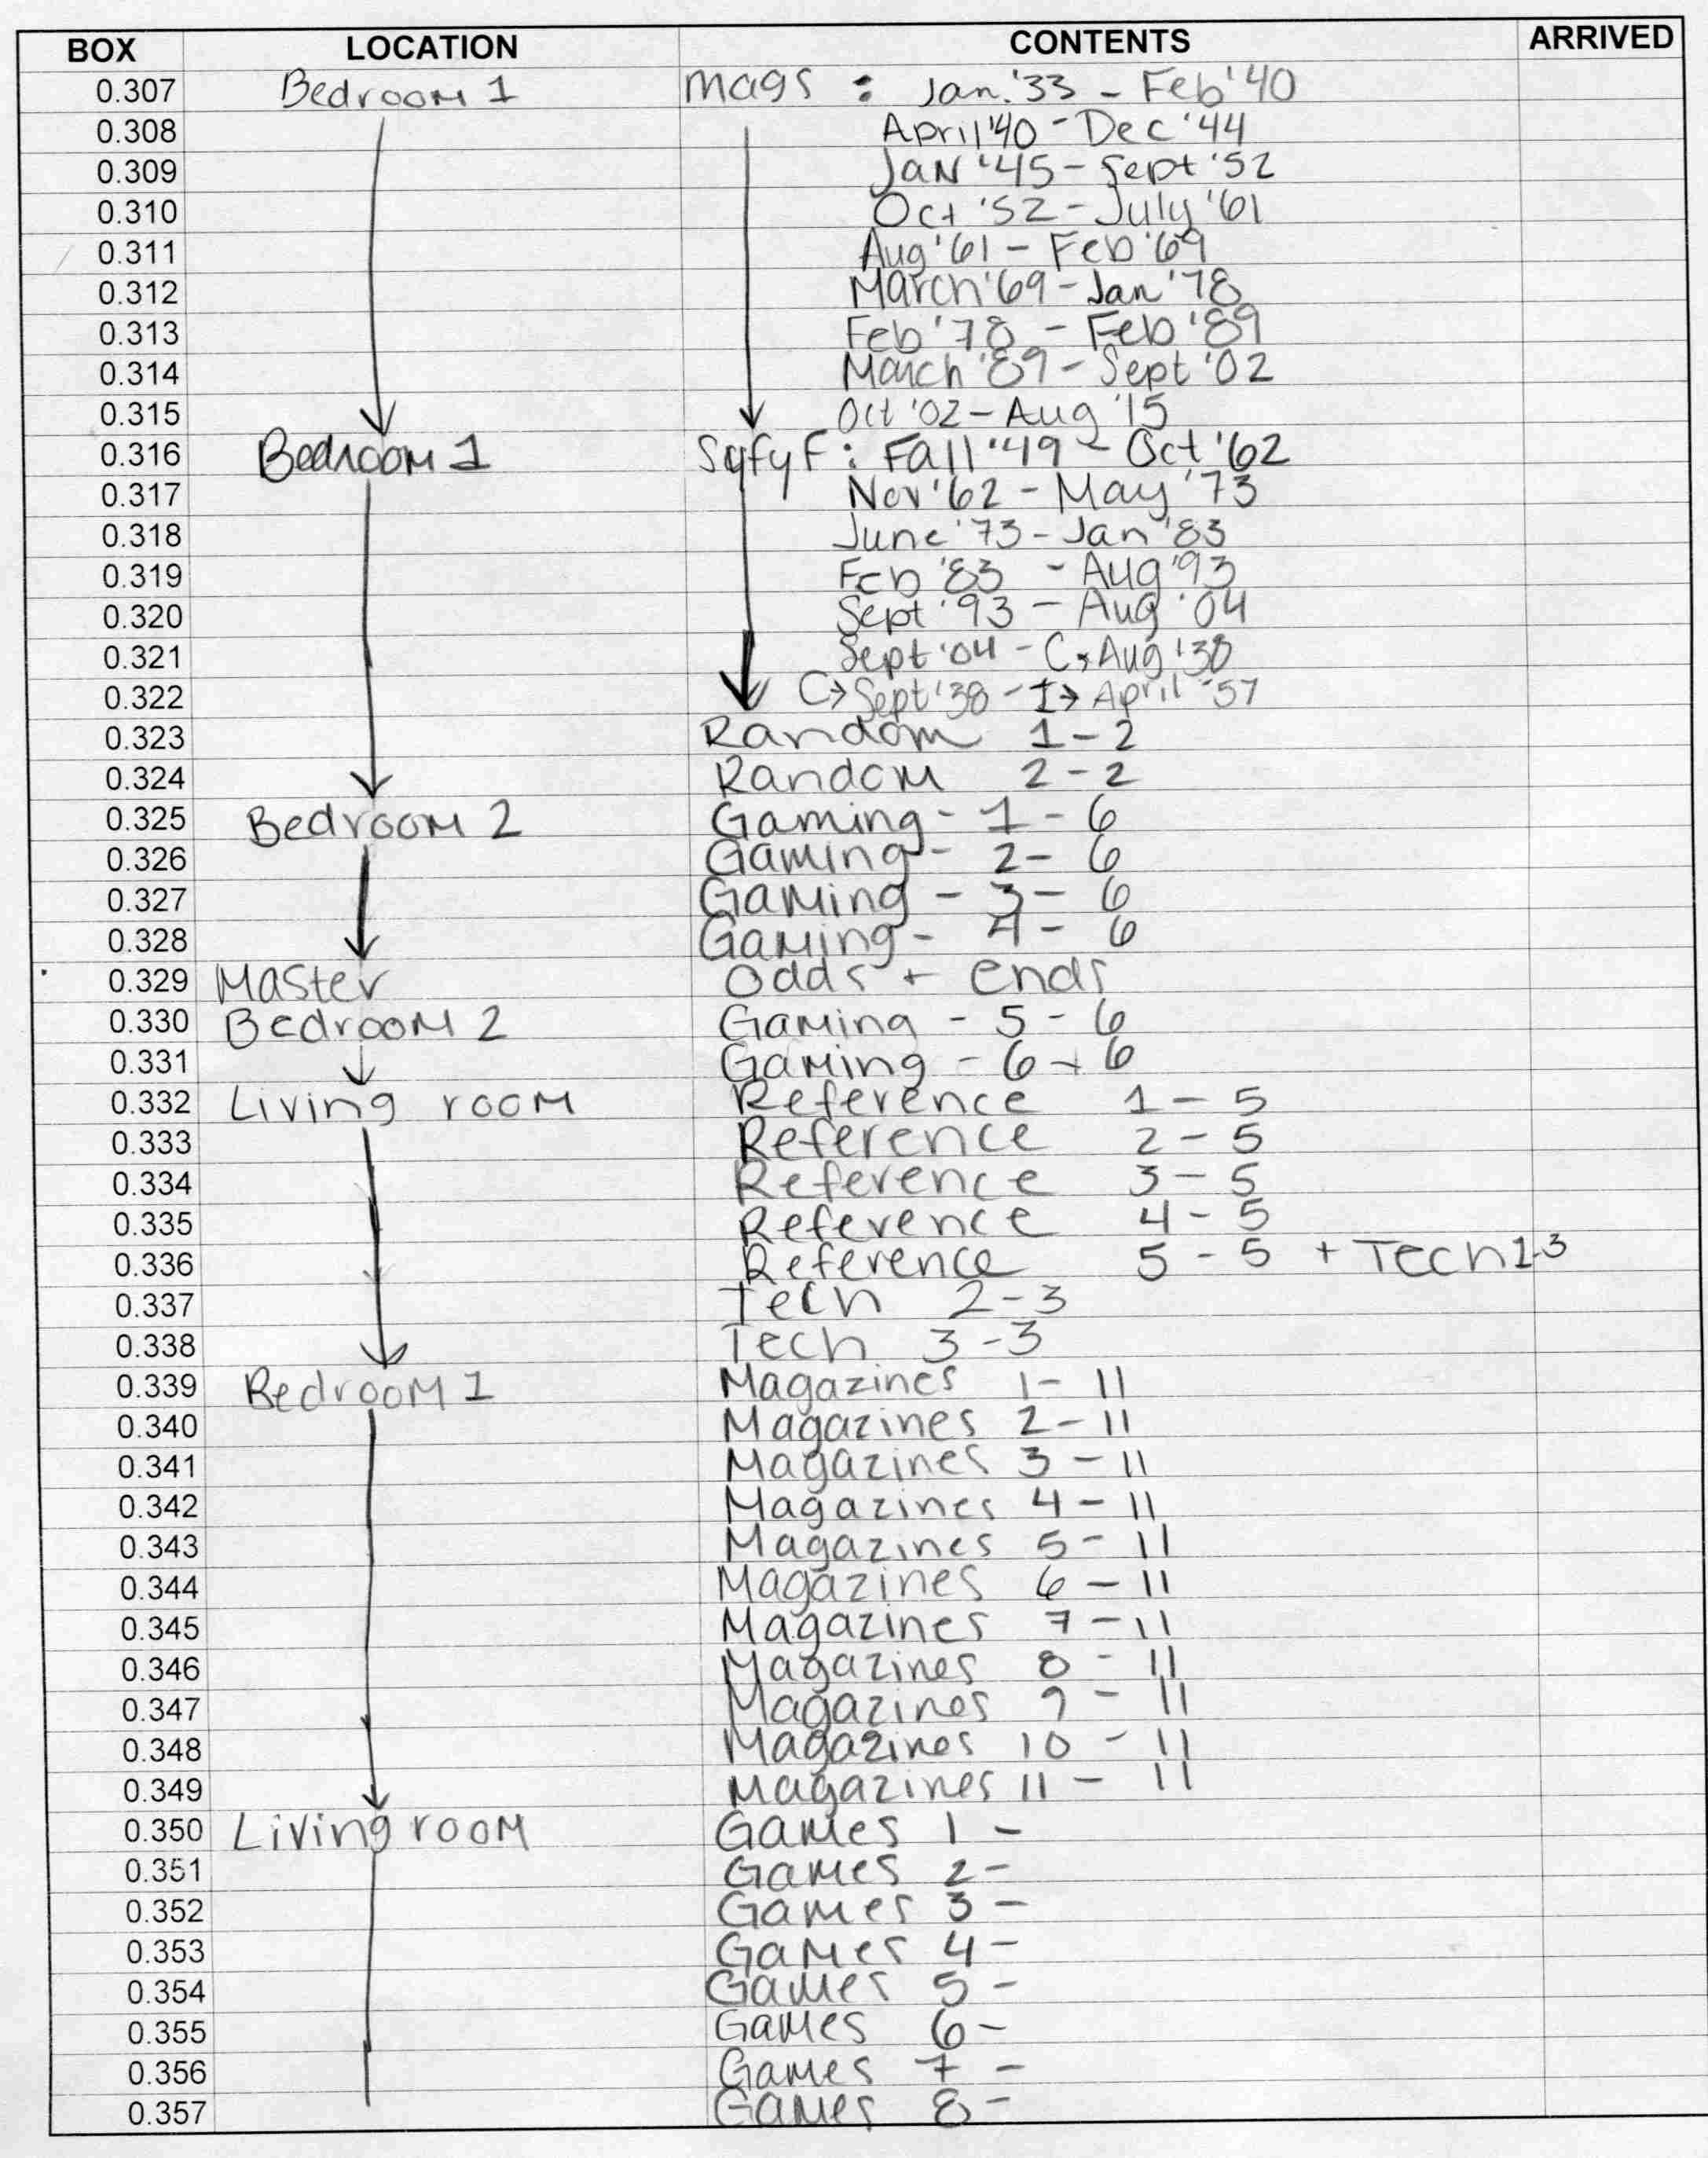 BOX LOCATION CONTENTS ARRIVED
0.307 Bedroom 1 mags : Jan. '33 - Feb '40
0.308 April '40 - Dec '44
0.309 JaN '45 - Sept '52
0.310 Oct '52 - July '61
0.311 Aug '61 - Feb '69
0.312 March '69 - Jan '78
0.313 Feb '78 - Feb '89
0.314 March '89 - Sept '02
0.315 Oct '02 - Aug '15
0.316 Bedroom 1 SyfyF : Fall '49 - Oct '62
0.317 Nov '62 - May '73
0.318 June '73 - Jan '83
0.319 Feb '83 - Aug '93
0.320 Sept '93 - Aug '04
0.321 Sept '04 - C→ Aug '38
0.322 C→ Sept '38 - I→ April '57
0.323 Random 1 - 2
0.324 Random 2 - 2
0.325 Bedroom 2 Gaming - 1 - 6
0.326 Gaming - 2 - 6
0.327 Gaming - 3 - 6
0.328 Gaming - 4 - 6
0.329 Master Odds + ends
0.330 Bedroom 2 Gaming - 5 - 6
0.331 Gaming - 6 - 6
0.332 Living room Reference 1 - 5
0.333 Reference 2 - 5
0.334 Reference 3 - 5
0.335 Reference 4 - 5
0.336 Reference 5 - 5 + Tech 1-3
0.337 Tech 2 - 3
0.338 Tech 3 - 3
0.339 Bedroom 1 Magazines 1 - 11
0.340 Magazines 2 - 11
0.341 Magazines 3 - 11
0.342 Magazines 4 - 11
0.343 Magazines 5 - 11
0.344 Magazines 6 - 11
0.345 Magazines 7 - 11
0.346 Magazines 8 - 11
0.347 Magazines 9 - 11
0.348 Magazines 10 - 11
0.349 Magazines 11 - 11
0.350 Living room Games 1 -
0.351 Games 2 -
0.352 Games 3 -
0.353 Games 4 -
0.354 Games 5 -
0.355 Games 6 -
0.356 Games 7 -
0.357 Games 8 -